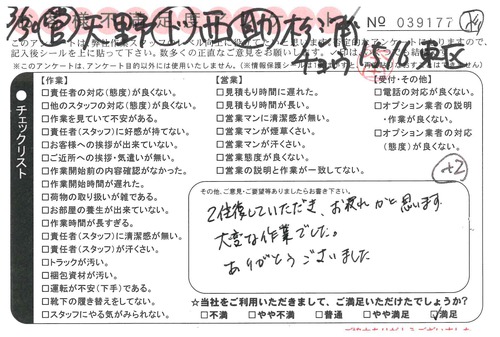 3/30 (営)矢野(上)西(助)杉
No 039177
このアンケートは
記入後シールを上に貼って下さい。
※このアンケートは、アンケート目的以外には使用いたしません。
チェックリスト
【作業】
□責任者の対応(態度)が良くない。
□他のスタッフの対応(態度)が良くない。
□作業を見ていて不安がある。
□責任者(スタッフ)に好感が持てない。
□お客様への挨拶が出来ていない。
□ご近所への挨拶・気遣いが無い。
□作業開始前の内容確認がなかった。
□作業開始時間が遅れた。
□荷物の取り扱いが雑である。
□お部屋の養生が出来ていない。
□作業時間が長すぎる。
□責任者(スタッフ)に清潔感が無い。
□責任者(スタッフ)が汗くさい。
□トラックが汚い。
□梱包資材が汚い。
□運転が不安(下手)である。
□靴下の履き替えをしてない。
□スタッフにやる気がみられない。
【営業】
□見積もり時間に遅れた。
□見積もり時間が長い。
□営業マンに清潔感が無い。
□営業マンが煙草くさい。
□営業マンが汗くさい。
□営業態度が良くない。
□営業の説明と作業が一致してない。
【受付・その他】
□電話の対応が良くない。
□オプション業者の説明
・作業が良くない。
□オプション業者の対応
(態度)が良くない。
+2
その他、ご意見・ご要望等ありましたらお書き下さい。
2往復していただき、お疲れかと思います
大変な作業でした。
ありがとうございました
☆当社をご利用いただきまして、ご満足いただけたでしょうか？
□不満 □やや不満 □普通 □やや満足 ☑満足